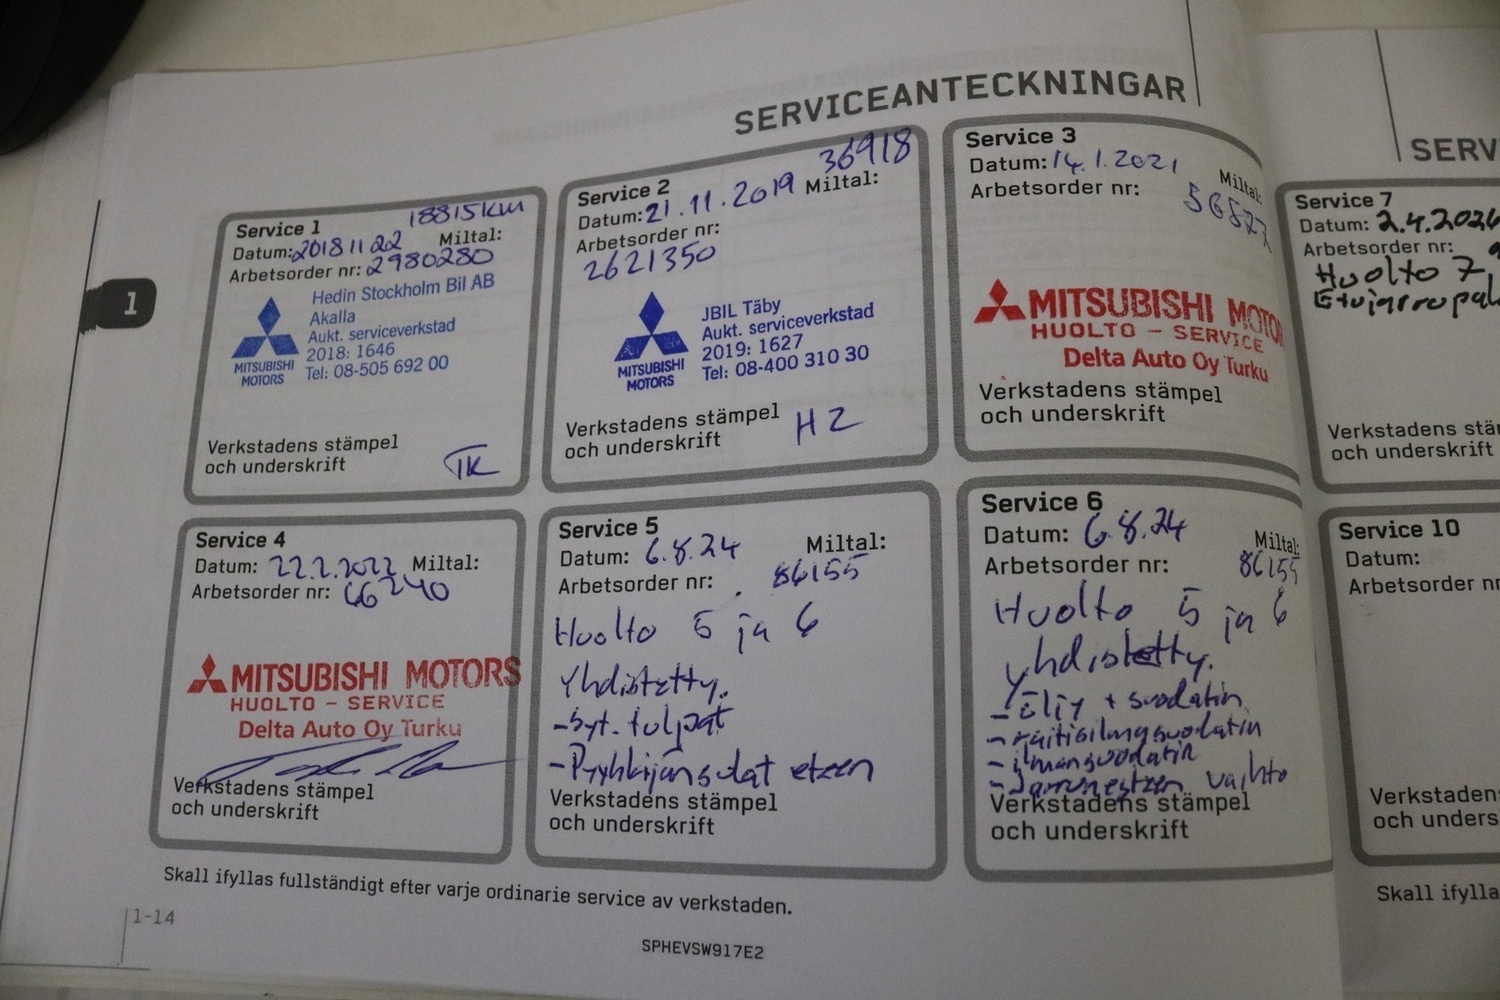 SERVICEANTECKNINGAR
Service 1
18815km
Datum: 20181122 Miltal:
Arbetsorder nr: 2980280
Hedin Stockholm Bil AB
Akalla
Aukt. serviceverkstad
2018: 1646
Tel: 08-505 692 00
MITSUBISHI
MOTORS
Verkstadens stämpel
och underskrift
TK
Service 2
36918
Datum: 21.11.2019 Miltal:
Arbetsorder nr:
2621350
JBIL Täby
Aukt. serviceverkstad
2019: 1627
Tel: 08-400 310 30
MITSUBISHI
MOTORS
Verkstadens stämpel
och underskrift
HZ
Service 3
Datum: 14.1.2021 Miltal:
Arbetsorder nr:
MITSUBISHI MOTO
HUOLTO - SERVICE
Delta Auto Oy Turku
Verkstadens stämpel
och underskrift
Service 4
Datum: 22.2.2022 Miltal:
Arbetsorder nr: 66240
MITSUBISHI MOTORS
HUOLTO - SERVICE
Delta Auto Oy Turku
Verkstadens stämpel
och underskrift
Service 5
Datum: 6.8.24 Miltal:
Arbetsorder nr: 86155
Huolto 5 ja 6
yhdistetty.
- Syt. tulpat
- Pyyhkijänsulat eteen
Verkstadens stämpel
och underskrift
Service 6
Datum: 6.8.24 Miltal:
Arbetsorder nr: 86155
Huolto 5 ja 6
yhdistetty.
- öljy + suodatin
- raitisilmasuodatin
- ilmansuodatin
- Jarrunesteen vaihto
Verkstadens stämpel
och underskrift
Skall ifyllas fullständigt efter varje ordinarie service av verkstaden.
1-14
SPHEVSW917E2
1
SERV
Service 7
Datum: 2.4.2026
Arbetsorder nr:
Huolto 7,
Verkstadens stä
och underskrift
Service 10
Datum:
Arbetsorder nr
Verkstadens
och unders
Skall ifylla